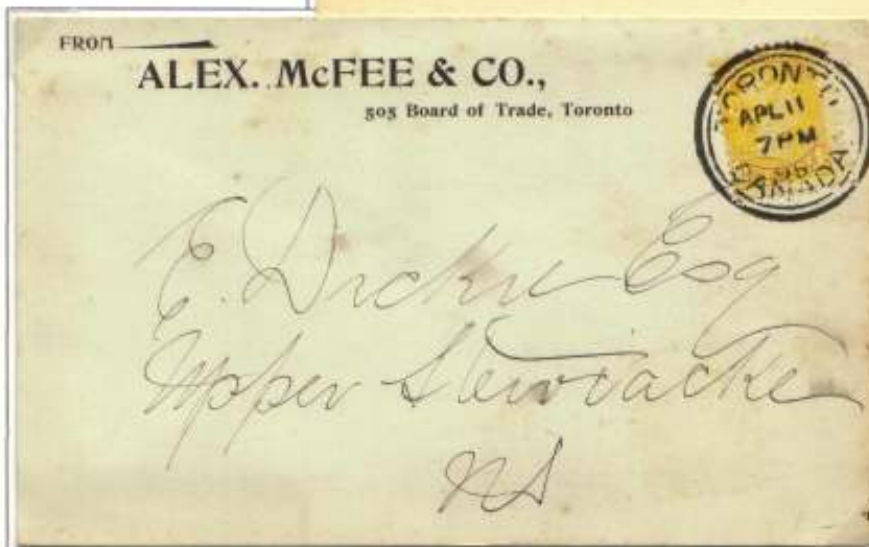 FROM
ALEX. McFEE & CO.,
505 Board of Trade, Toronto
TORONTO
APL 11
7 PM
CANADA
E. Dickie Esq
Upper Stewiacke
NS